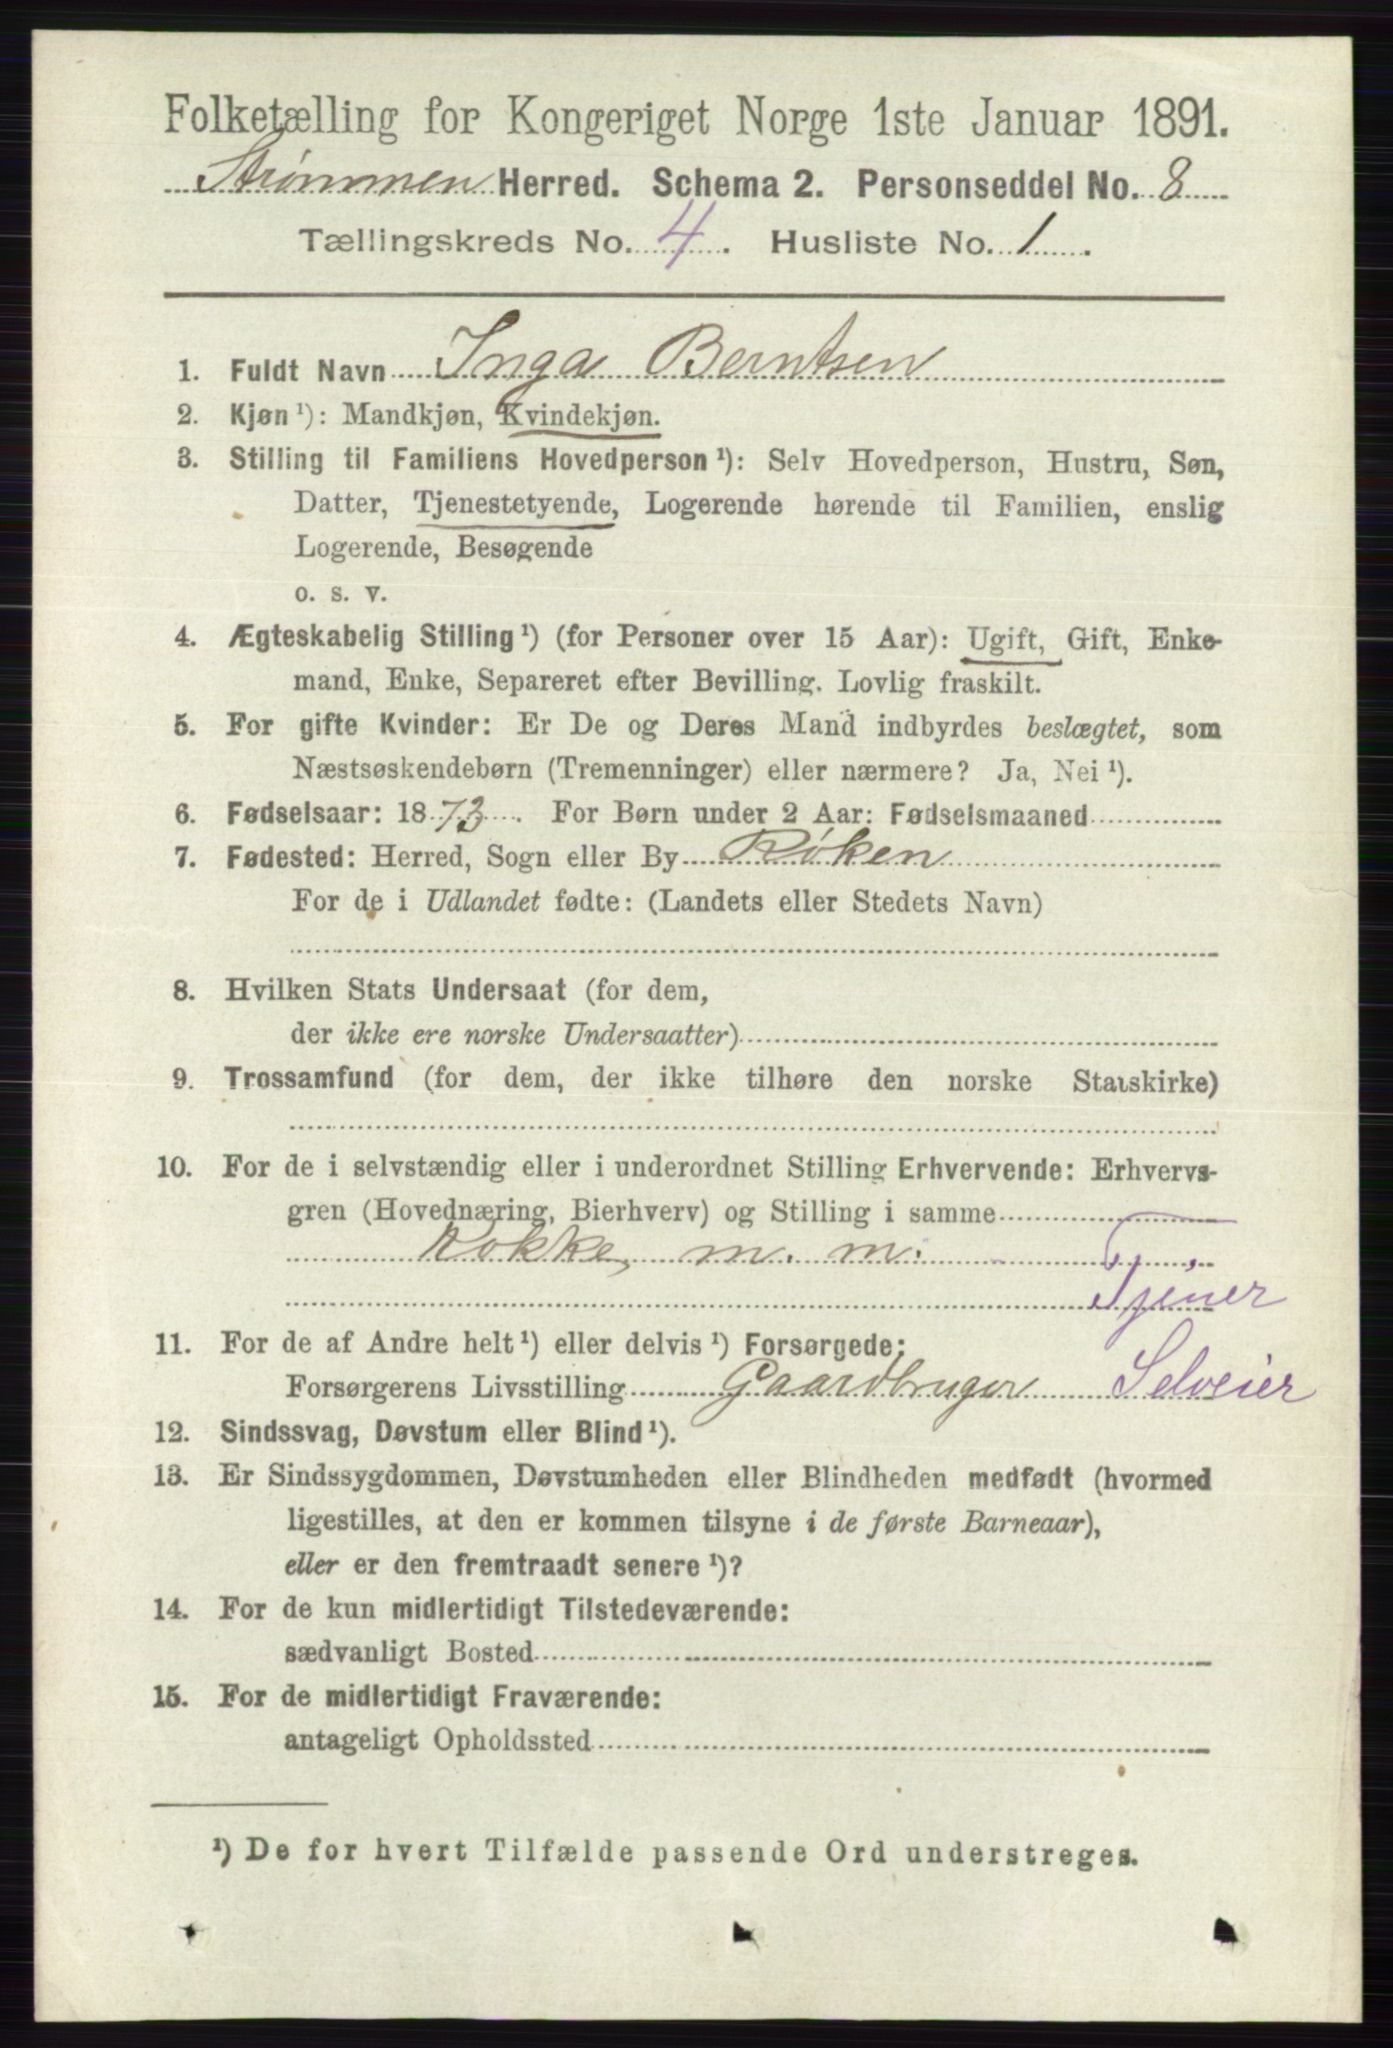 Folketælling for Kongeriget Norge 1ste Januar 1891.
Strømmen Herred. Schema 2. Personseddel No. 8
Tællingskreds No. 4. Husliste No. 1.
1. Fuldt Navn Inga Berntsen
2. Kjøn ¹): Mandkjøn, Kvindekjøn.
3. Stilling til Familiens Hovedperson ¹): Selv Hovedperson, Hustru, Søn,
Datter, Tjenestetyende, Logerende hørende til Familien, enslig
Logerende, Besøgende
o. s. v.
4. Ægteskabelig Stilling ¹) (for Personer over 15 Aar): Ugift, Gift, Enke-
mand, Enke, Separeret efter Bevilling. Lovlig fraskilt.
5. For gifte Kvinder: Er De og Deres Mand indbyrdes beslægtet, som
Næstsøskendebørn (Tremenninger) eller nærmere? Ja, Nei ¹).
6. Fødselsaar: 1873. For Børn under 2 Aar: Fødselsmaaned
7. Fødested: Herred, Sogn eller By Røken
For de i Udlandet fødte: (Landets eller Stedets Navn)
8. Hvilken Stats Undersaat (for dem,
der ikke ere norske Undersaatter)
9. Trossamfund (for dem, der ikke tilhøre den norske Statskirke)
10. For de i selvstændig eller i underordnet Stilling Erhvervende: Erhvervs-
gren (Hovednæring, Bierhverv) og Stilling i samme
Kokke, m. m.
Tjener
11. For de af Andre helt ¹) eller delvis ¹) Forsørgede:
Forsørgerens Livsstilling Gaardbruger Selveier
12. Sindssvag, Døvstum eller Blind ¹).
13. Er Sindssygdommen, Døvstumheden eller Blindheden medfødt (hvormed
ligestilles, at den er kommen tilsyne i de første Barneaar),
eller er den fremtraadt senere ¹)?
14. For de kun midlertidigt Tilstedeværende:
sædvanligt Bosted
15. For de midlertidigt Fraværende:
antageligt Opholdssted
¹) De for hvert Tilfælde passende Ord understreges.